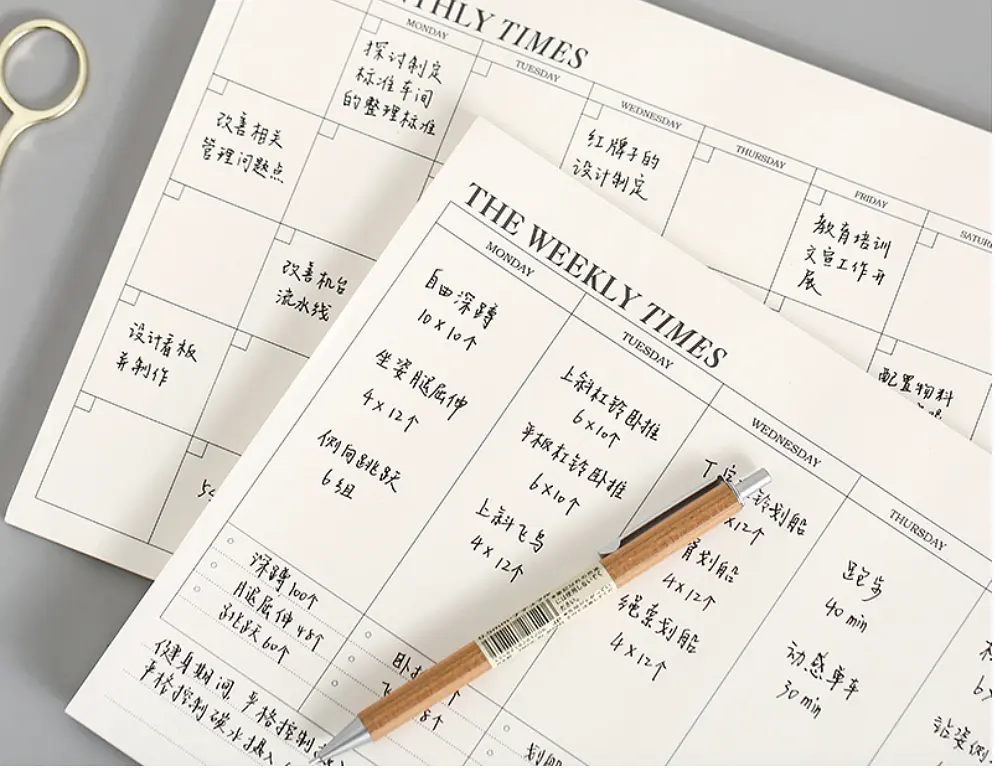 THLY TIMES
MONDAY
TUESDAY
WEDNESDAY
THURSDAY
FRIDAY
探讨制定
标准车间
的整理标准
红牌子的
设计制定
教育培训
文宣工作开
展
改善相关
管理问题点
改善机台
流水线
配置物料
设计看板
并制作
THE WEEKLY TIMES
MONDAY
TUESDAY
WEDNESDAY
THURSDAY
自由深蹲
10x10个
坐姿腿屈伸
4x12个
侧向跳跃
6组
深蹲100个
腿屈伸48个
跳跃60个
健身期间,严格控制
严格控制碳水摄入
上斜杠铃卧推
6x10个
平板杠铃卧推
6x10个
上斜飞鸟
4x12个
铃划船
x12个
角划船
4x12个
绳索划船
4x12个
划船
跑步
40 min
动感单车
30 min
站姿侧